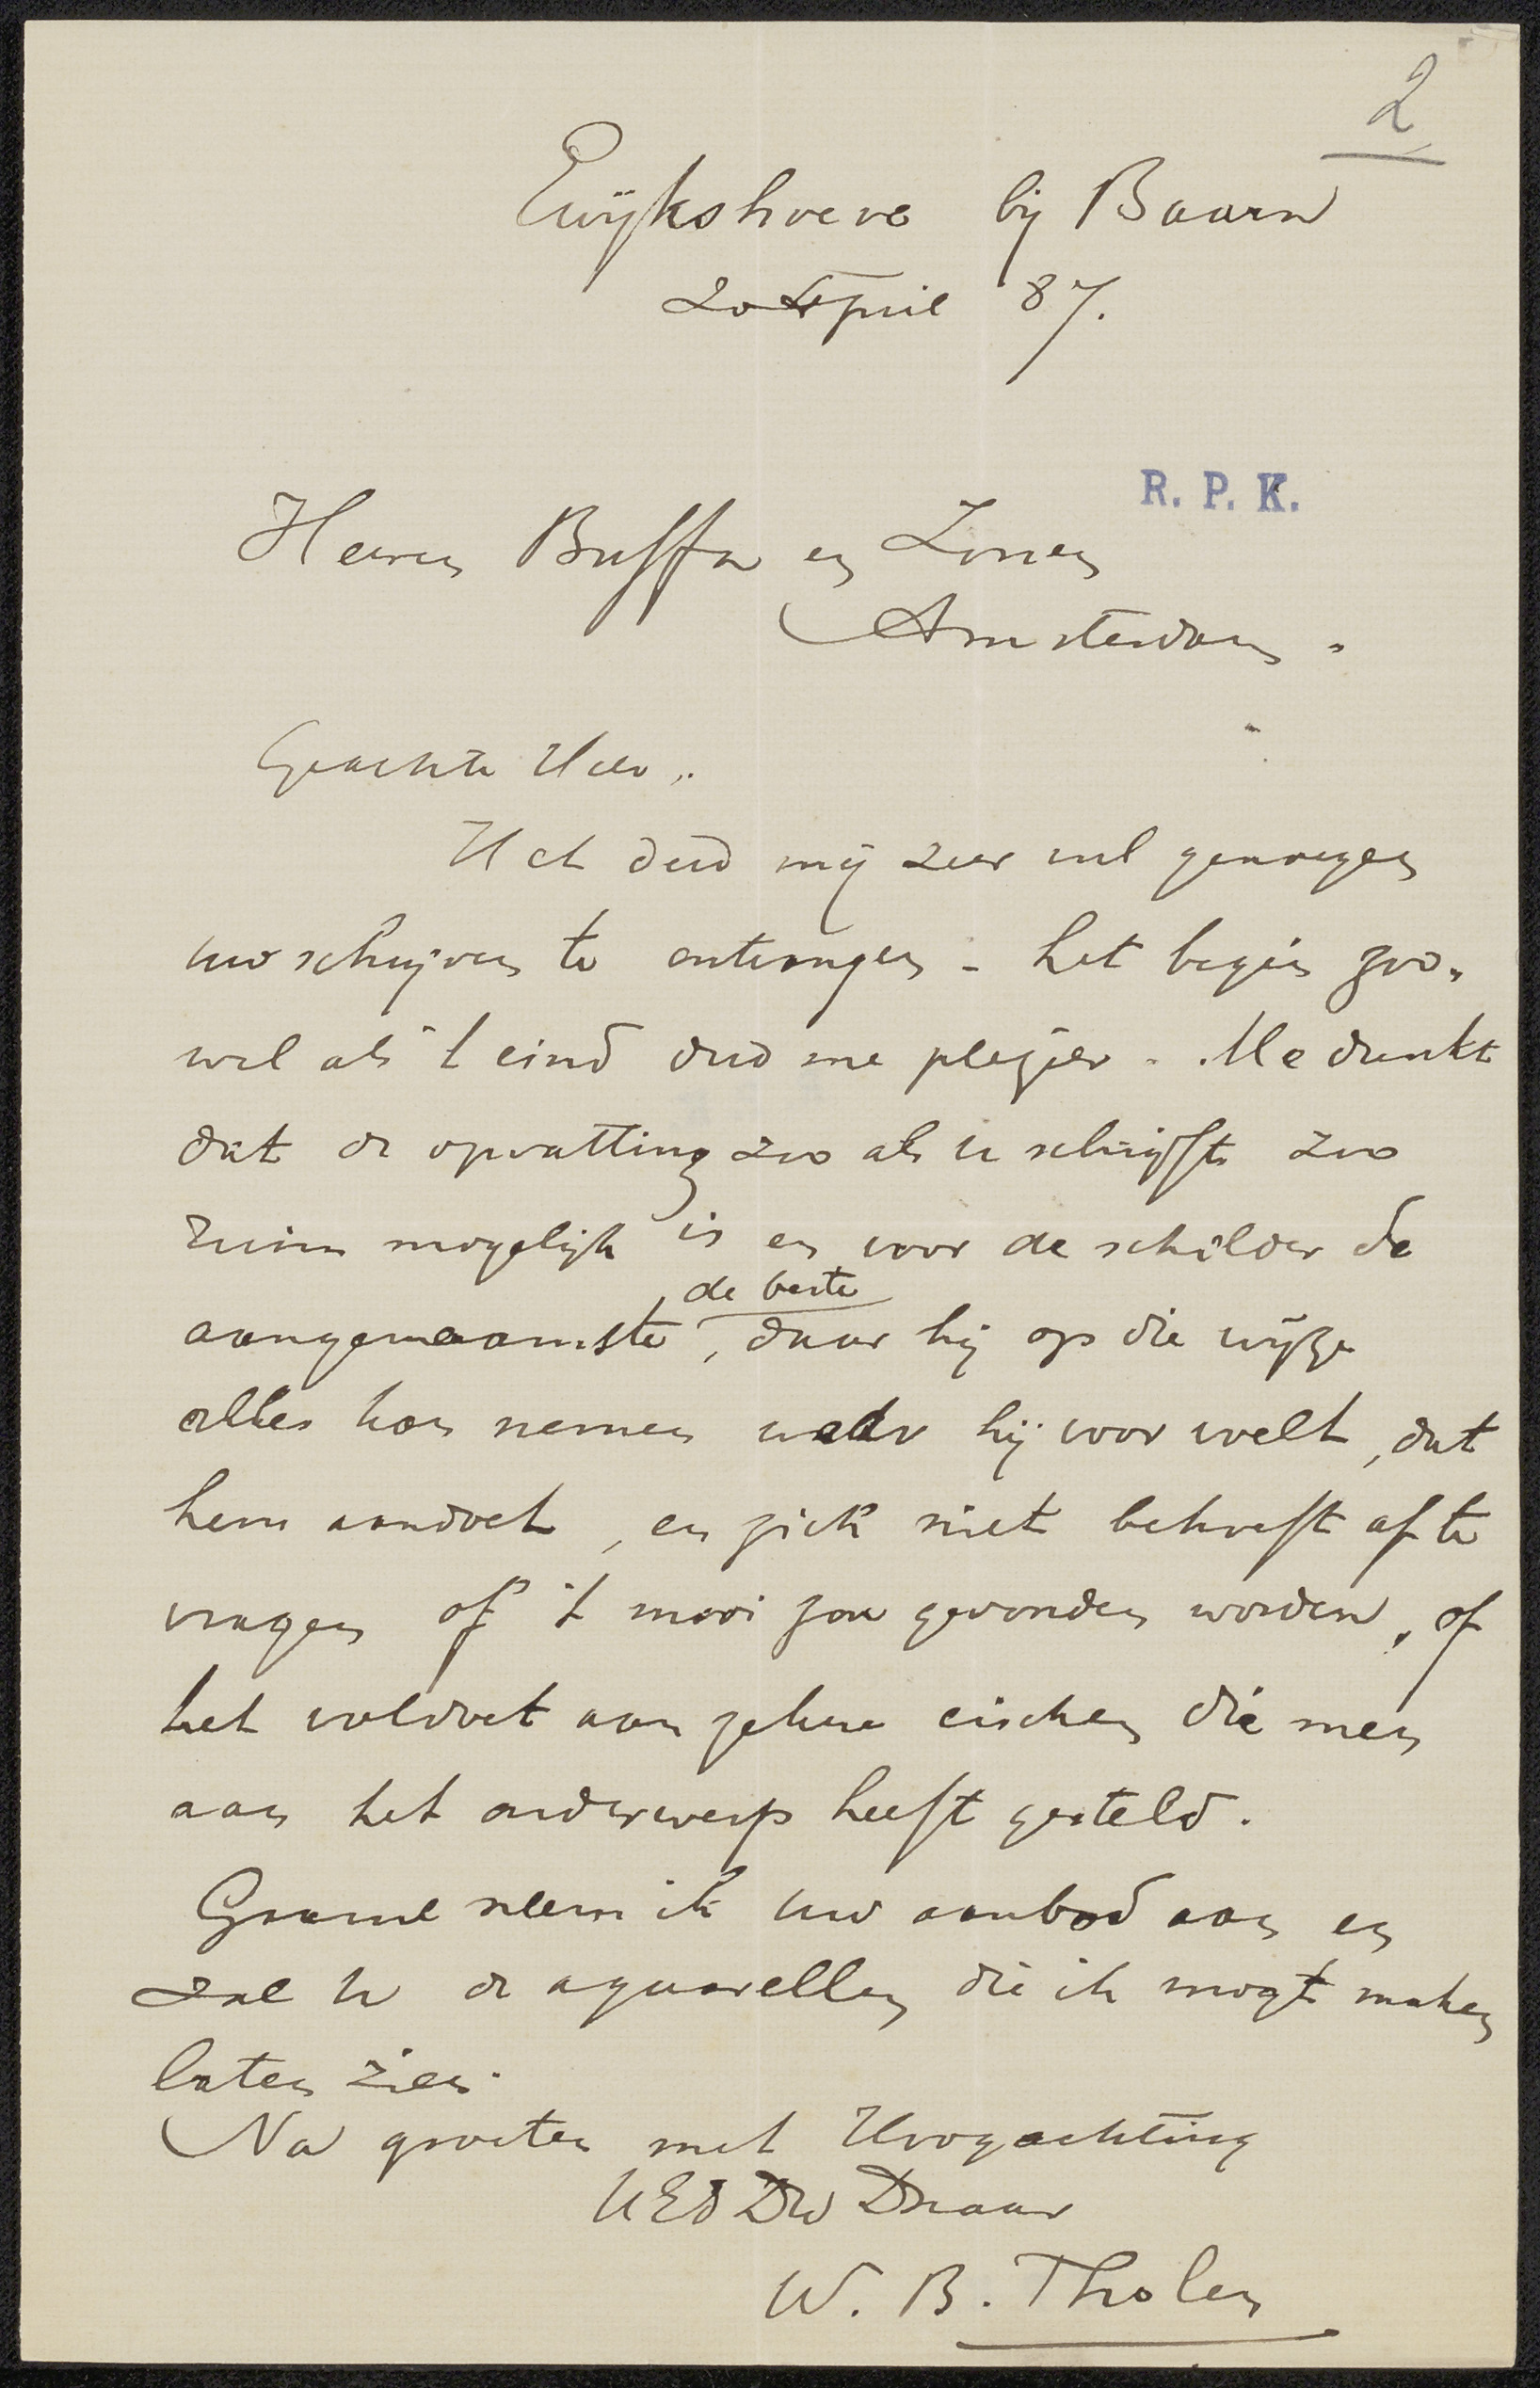 2
Ewijkshoeve bij Baarn
20 April 87.
R. P. K.
Heeren Buffa en Zonen
Amsterdam.
Geachte Heer,
Het deed mij zeer veel genoegen
uw schrijven te ontvangen - het begin zoo-
wel als 't eind deed me plezier. Me dunkt
dat de opvatting zoo als u schrijft zoo
ruim mogelijk is en voor de schilder de
aangenaamste, de beste, daar hij op die wijze
alles kan nemen waar hij voor voelt, dat
hem aandoet, en zich niet behoeft af te
vragen of 't mooi zou gevonden worden, of
het voldoet aan zekere eischen die men
aan het onderwerp heeft gesteld.
Gaarne neem ik uw aanbod aan en
zal U de aquarellen die ik mogt maken
laten zien.
Na groeten met Hoogachting
UEd Dw Dnaar
W. B. Tholen